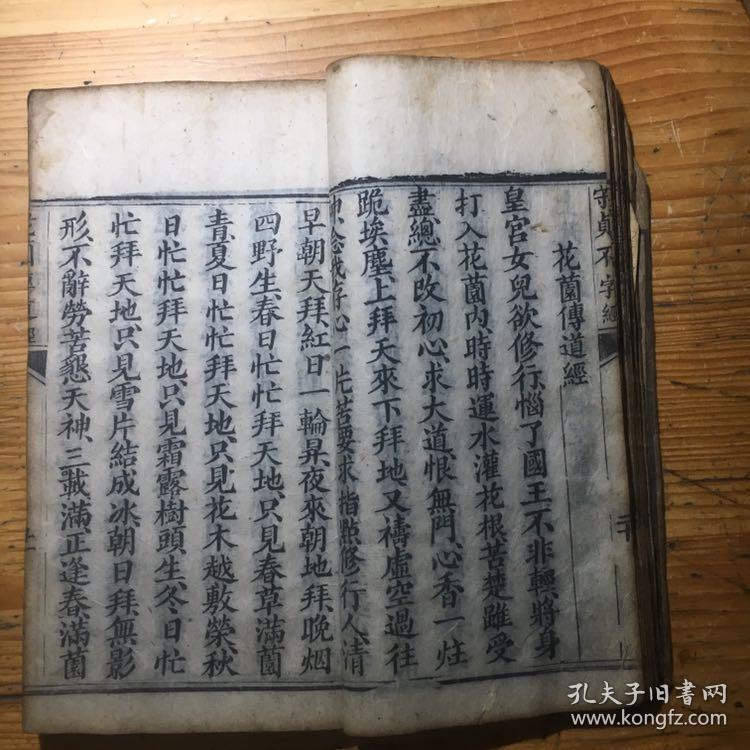 守貞不字經
花薗傳道經
皇宫女兒欲修行、惱了國王不非輕、將身
打入花薗內、時時運水灌花根、苦楚雖受
盡、總不改初心、求大道、恨無門、心香一炷
跪埃塵、上拜天來下拜地、又禱虛空過往
存心一片若要求指㸃修行人、清
早朝天拜、紅日一輪昇、夜來朝地拜、晚烟
四野生、春日忙忙拜天地、只見春草滿薗
青、夏日忙忙拜天地、只見花木越敷榮、秋
日忙忙拜天地、只見霜露樹頭生、冬日忙
忙拜天地、只見雪片結成冰、朝日拜、無影
形、不辭勞苦懇天神、三載滿、正逢春、滿薗
孔夫子旧書网
www.kongfz.com